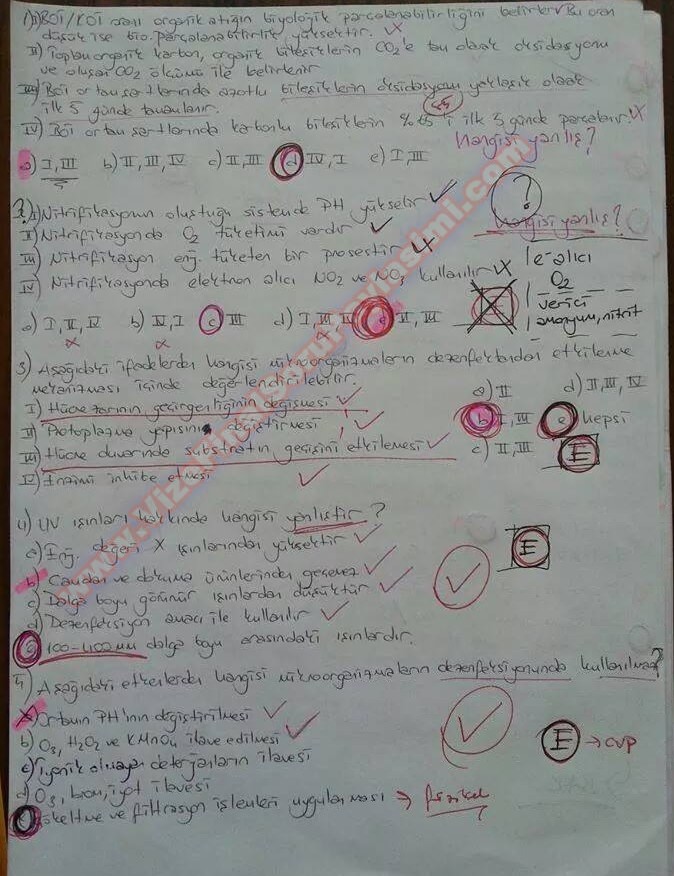 1) I) BOİ/KOİ oranı organik atığın biyolojik parçalanabilirliğini belirler Bu oran
düşük ise bio. parçalanabilirlik yüksektir. X
II) Toplam organik karbon, organik bileşiklerin CO2'e tam olarak oksidasyonu
ve oluşan CO2 ölçümü ile belirlenir
III) BOİ ortam şartlarında azotlu bileşiklerin oksidasyonu yaklaşık olarak
ilk 5 günde tamamlanır.
IV) BOİ ortam şartlarında karbonlu bileşiklerin % i ilk 5 günde parçalanır. X
Hangisi yanlış?
a) I, III b) II, III, IV c) II, III d) IV, I e) I, III
?
2) I) Nitrifikasyonun oluştuğu sistemde PH yükselir
hangisi yanlış?
II) Nitrifikasyonda O2 tüketimi vardır
III) Nitrifikasyon enj. tüketen bir prosestir X
IV) Nitrifikasyonda elektron alıcı NO2 ve NO3 kullanılır X
e- alıcı
O2
verici
amonyum, nitrit
a) I, II, IV b) IV, I c) III d) I, III, IV e) II, III
3) Aşağıdaki ifadelerden hangisi mikroorganizmaların dezenfektandan etkilenme
mekanizması içinde değerlendirilebilir.
I) Hücre zarının geçirgenliğinin değişmesi
II) Protoplazma yapısını değiştirmesi
III) Hücre duvarında substratın geçişini etkilemesi
IV) Enzimi inhibe etmesi
a) II d) II, III, IV
b) I, III e) hepsi
c) II, III E
4) UV ışınları hakkında hangisi yanlıştır?
a) Enj. değeri X ışınlarından yüksektir
E
b) Camdan ve dokuma ürünlerinden geçemez
c) Dalga boyu görünür ışınlardan düşüktür
d) Dezenfeksiyon amacı ile kullanılır
dalga boyu arasındaki ışınlardır.
5) Aşağıdaki etkenlerden hangisi mikroorganizmaların dezenfeksiyonunda kullanılmaz?
Ortamın PH'ının değiştirilmesi
b) O3, H2O2 ve KMnO4 ilave edilmesi
E → CVP
c) İyonik olmayan deterjanların ilavesi
d) O3, brom, iyot ilavesi
e) Çökeltme ve filtrasyon işlemleri uygulanması → fiziksel
www.vizefinalhazirlaviasimi.com